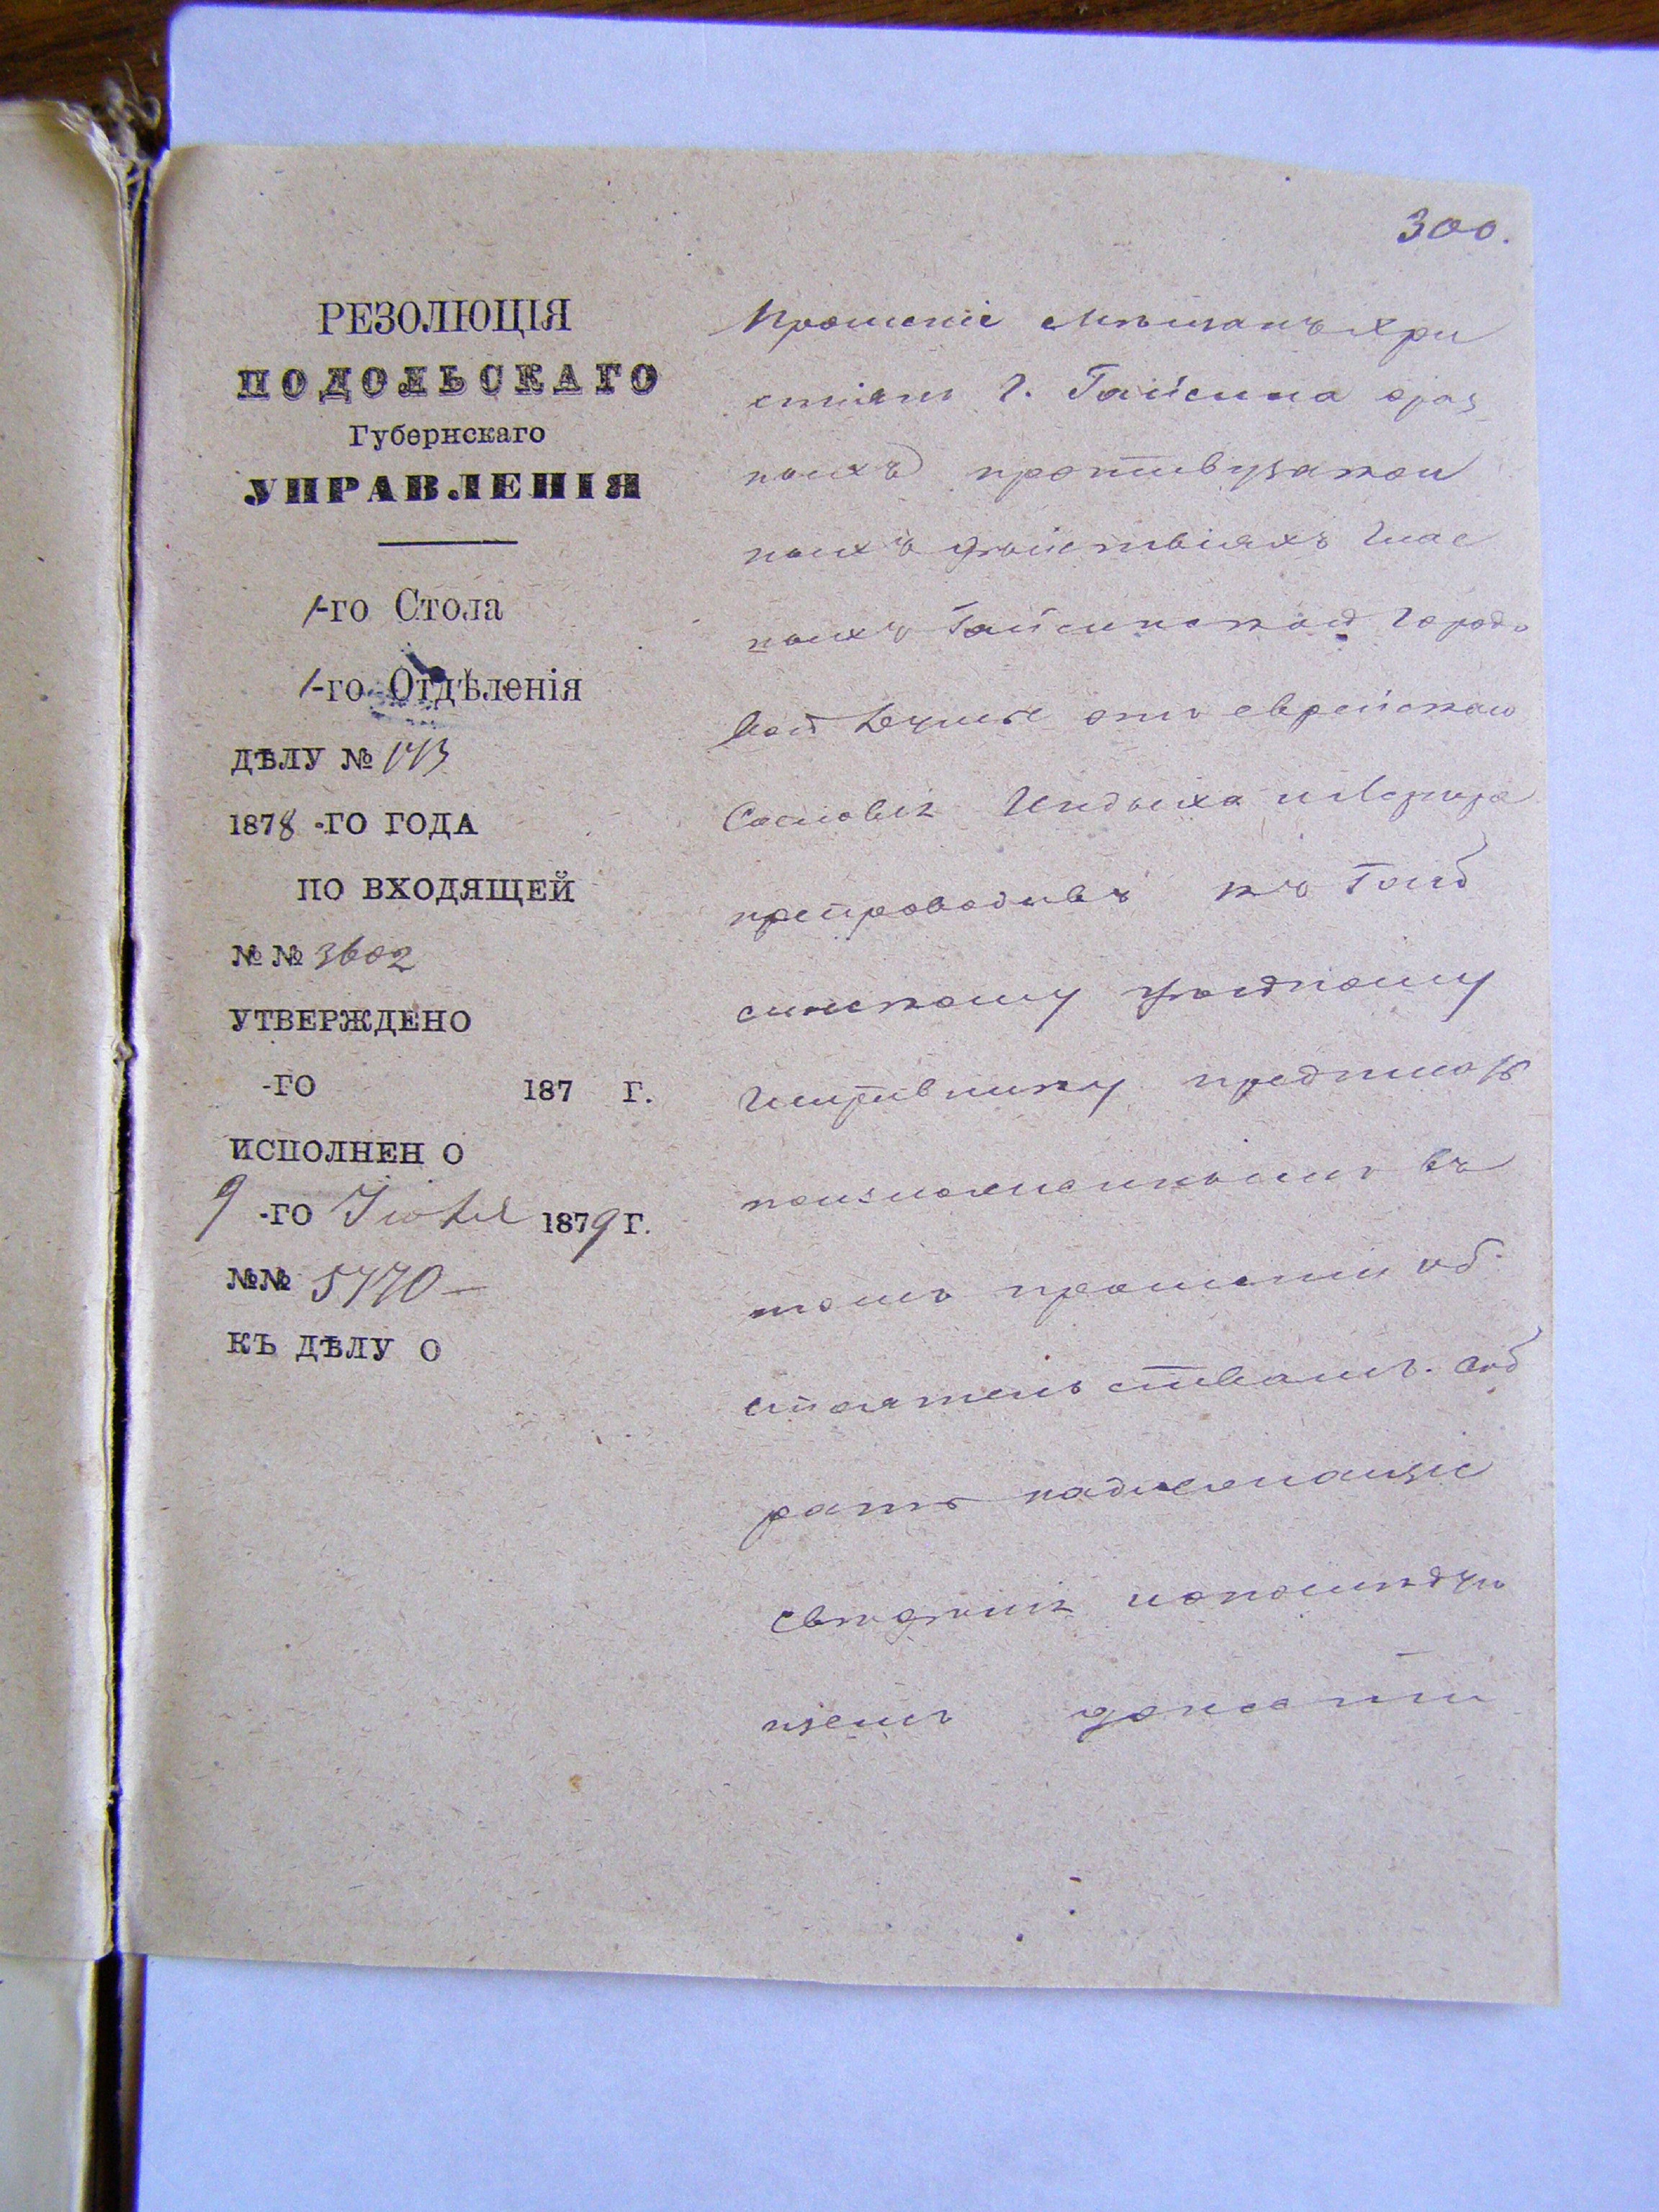 300.
РЕЗОЛЮЦІЯ
ПОДОЛЬСКАГО
Губернскаго
УПРАВЛЕНІЯ
1-го Стола
1-го Отдѣленія
ДѢЛУ №
1878-ГО ГОДА
ПО ВХОДЯЩЕЙ
№№ 3602
УТВЕРЖДЕНО
-ГО 187 Г.
ИСПОЛНЕНО
9-ГО 1879 Г.
№№ 5770
КЪ ДѢЛУ О
Прошеніе мѣщанъ хри
стіянъ г. Гайсина о раз
ныхъ противузакон
ныхъ дѣйствіяхъ глас
ныхъ Гайсинской Городо
вой Думы отъ еврейскаго
Сословія
препроводивъ къ Гай
синскому уѣздному
Исправнику предписать
по изложеннымъ въ
томъ прошеніи об
стоятельствамъ соб
рать надлежащіе
свѣдѣнія и о послѣдую
щемъ донести